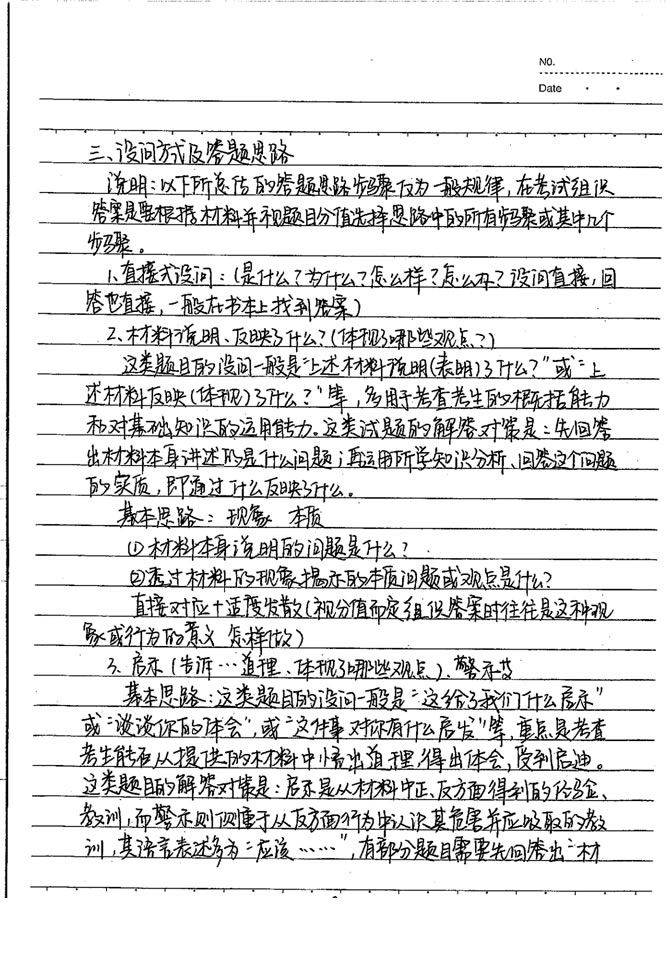 NO.
Date
三、设问方式及答题思路
说明:以下所总结的答题思路步骤仅为一般规律,在考试组织
答案是要根据材料并视题目分值选择思路中的所有步骤或其中几个
步骤。
1、直接式设问:(是什么?为什么?怎么样?怎么办?设问直接,回
答也直接,一般在书本上找到答案)
2、材料说明、反映了什么?(体现了哪些观点?)
这类题目的设问一般是"上述材料说明(表明)了什么?"或"上
述材料反映(体现)了什么?"等,多用于考查考生的概括能力
和对基础知识的运用能力。这类试题的解答对策是:先回答
出材料本身讲述的是什么问题;再运用所学知识分析、回答这个问题
的实质,即通过什么反映了什么。
基本思路:现象 本质
(1)材料本身说明的问题是什么?
(2)透过材料的现象揭示的本质问题或观点是什么?
直接对应+适度发散(视分值而定组织答案时往往是这种现
象或行为的意义 怎样做)
3、启示(告诉…道理、体现了哪些观点)、警示等
基本思路:这类题目的设问一般是"这给了我们什么启示"
或"谈谈你的体会",或"这件事对你有什么启发"等,重点是考查
考生能否从提供的材料中悟出道理,得出体会,受到启迪。
这类题目的解答对策是:启示是从材料中正、反方面得到的经验、
教训,而警示则侧重于从反方面行为中认识其危害并应吸取的教
训,其语言表述多为"应该……",有部分题目需要先回答出"材